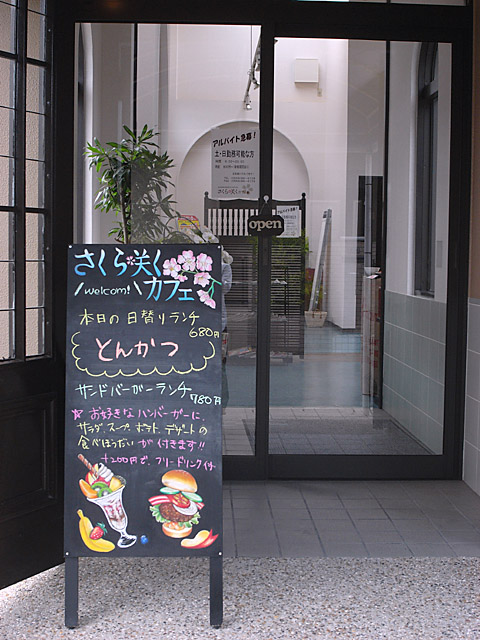 アルバイト急募!
土・日勤務可能な方
さくら咲く
open
さくら咲く
welcom! カフェ
本日の日替りランチ
680円
とんかつ
サンドバーガーランチ
780円
☆お好きなハンバーガーに、
サラダ、スープ、ポテト、デザートの
食べほうだいが付きます!!
+200円で、フリードリンク付